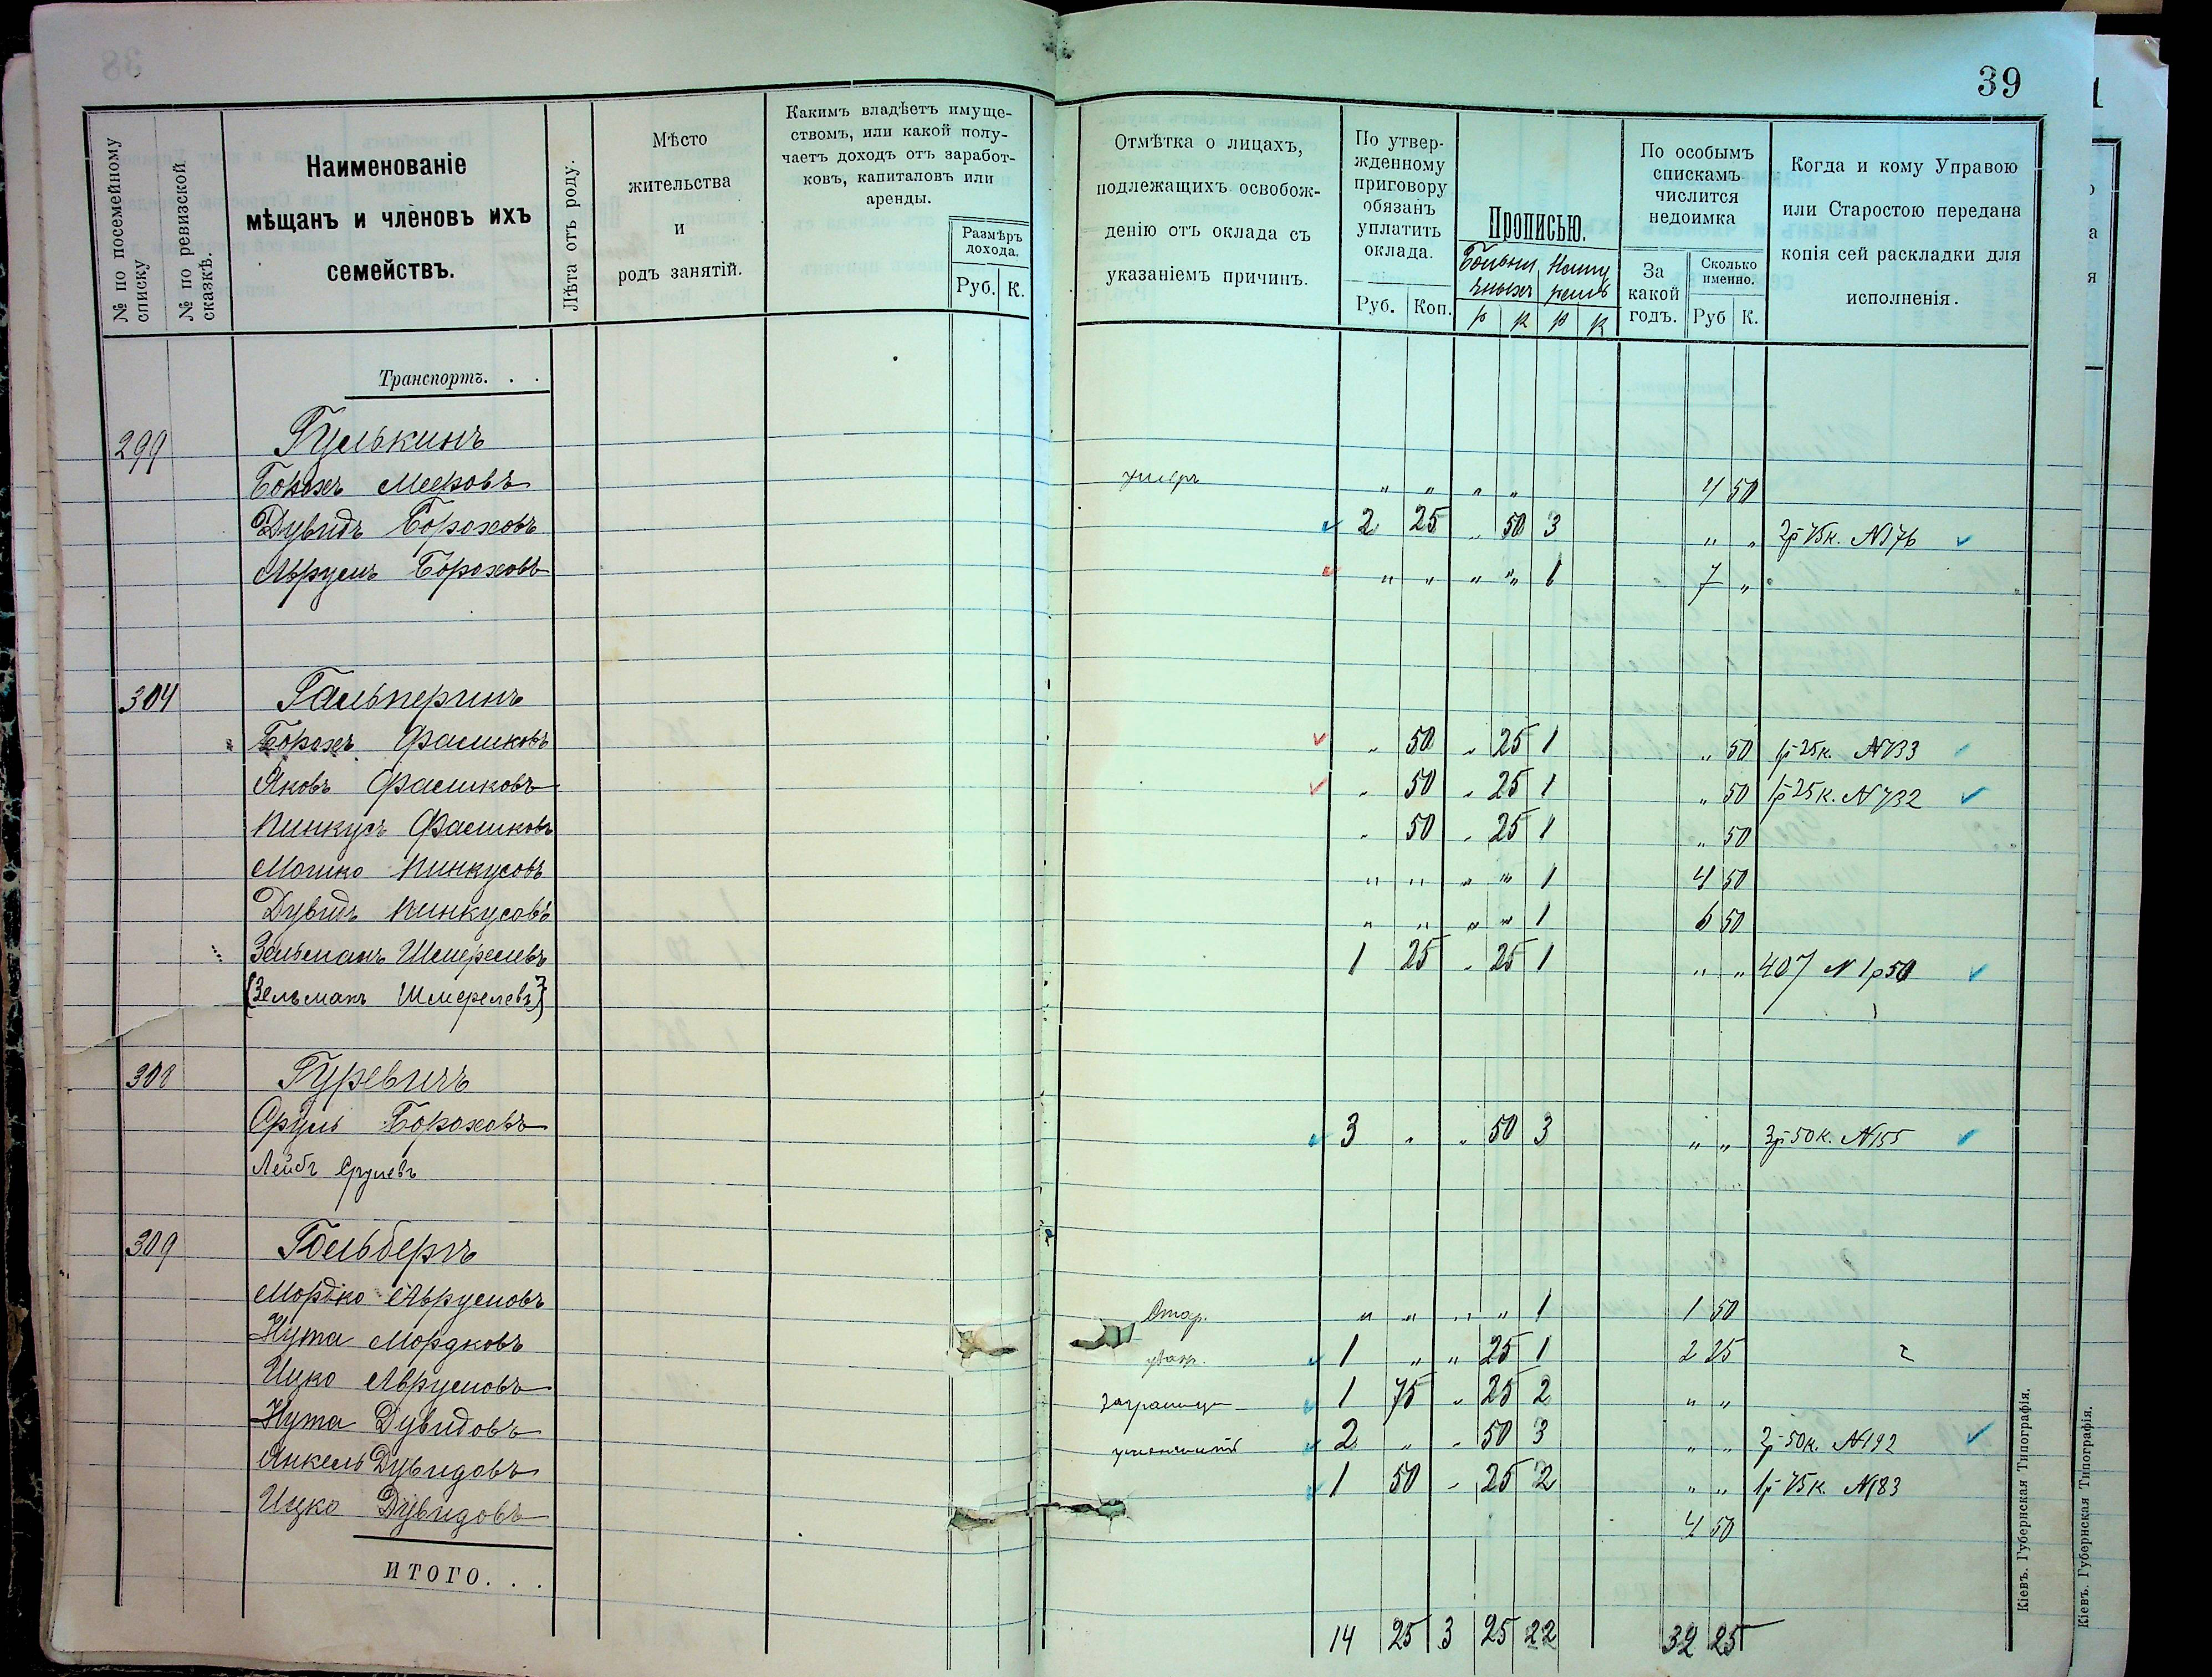 39
№ по посемейному списку
№ по ревизской сказкѣ.
Наименованіе мѣщанъ и членовъ ихъ семействъ.
Лѣта отъ роду.
Мѣсто жительства и родъ занятій.
Какимъ владѣетъ имуще-
ствомъ, или какой полу-
чаетъ доходъ отъ заработ-
ковъ, капиталовъ или
аренды.
Размѣръ дохода.
Руб. К.
Отмѣтка о лицахъ,
подлежащихъ освобож-
денію отъ оклада съ
указаніемъ причинъ.
По утвер-
жденному
приговору
обязанъ
уплатить
оклада.
Руб. Коп.
Прописью.
р к р к
По особымъ
спискамъ
числится
недоимка
За какой годъ.
Сколько именно.
Руб К.
Когда и кому Управою
или Старостою передана
копія сей раскладки для
исполненія.
Транспортъ. . .
299 Гулькинъ
Борохъ Мееровъ умеръ " " " " 4 50
Дувидъ Бороховъ 2 25 " 50 3 " " 2р 75к. № 176
Аврумъ Бороховъ " " " " 1 7 "
304 Гальперинъ
Борохъ Фаликовъ " 50 " 25 1 " 50 1р 25к. № 733
Яковъ Фаликовъ " 50 " 25 1 " 50 1р 25к. № 732
Пинкусъ Фаликовъ " 50 " 25 1 " 50
Мошко Пинкусовъ " " " " 1 4 50
Дувидъ Пинкусовъ " " " " 1 6 50
Зельманъ Шмерелевъ 1 25 " 25 1 " " 407 N 1р 50
(Зельманъ Шмерелевъ)
308 Гуревичъ
Сруль Бороховъ 3 " " 50 3 " " 3р 50к. № 155
Лейбъ Срулевъ
309 Гольбергъ
Мордко Аврумовъ Стар. " " " " 1 1 50
Нута Мордковъ 1 " " 25 1 2 25
Ицко Аврумовъ заграницу 1 75 " 25 2 " "
Нута Дувидовъ 2 " " 50 3 " " 2р 50к. № 192
Янкель Дувидовъ 1 50 " 25 2 " " 1р 75к. № 183
Ицко Дувидовъ 4 50
ИТОГО. . .
14 25 3 25 22 32 25
Кіевъ. Губернская Типографія.
Кіевъ. Губернская Типографія.